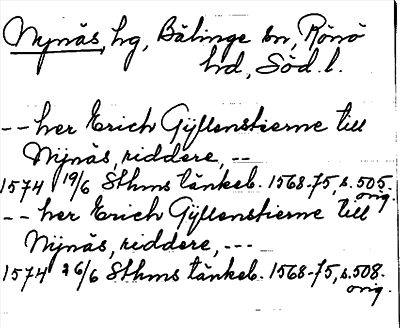 Nynäs, hg, Bälinge sn, Rönö
hd, Söd. l.
-- her Erich Gyllenstierne till
Nijnäs, riddere, --
1574 19/6 Sthms tänkeb. 1568-75, s. 505.
orig.
-- her Erich Gyllenstierne till
Nijnäs, riddere, ---
1574 26/6 Sthms tänkeb. 1568-75, s. 508.
orig.